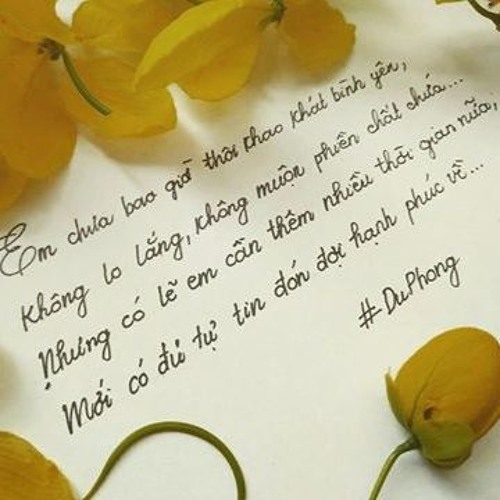 Em chưa bao giờ thôi khao khát bình yên,
Không lo lắng, không muộn phiền chất chứa...
Nhưng có lẽ em cần thêm nhiều thời gian nữa,
Mới có đủ tự tin đón đợi hạnh phúc về...
#DuPhong